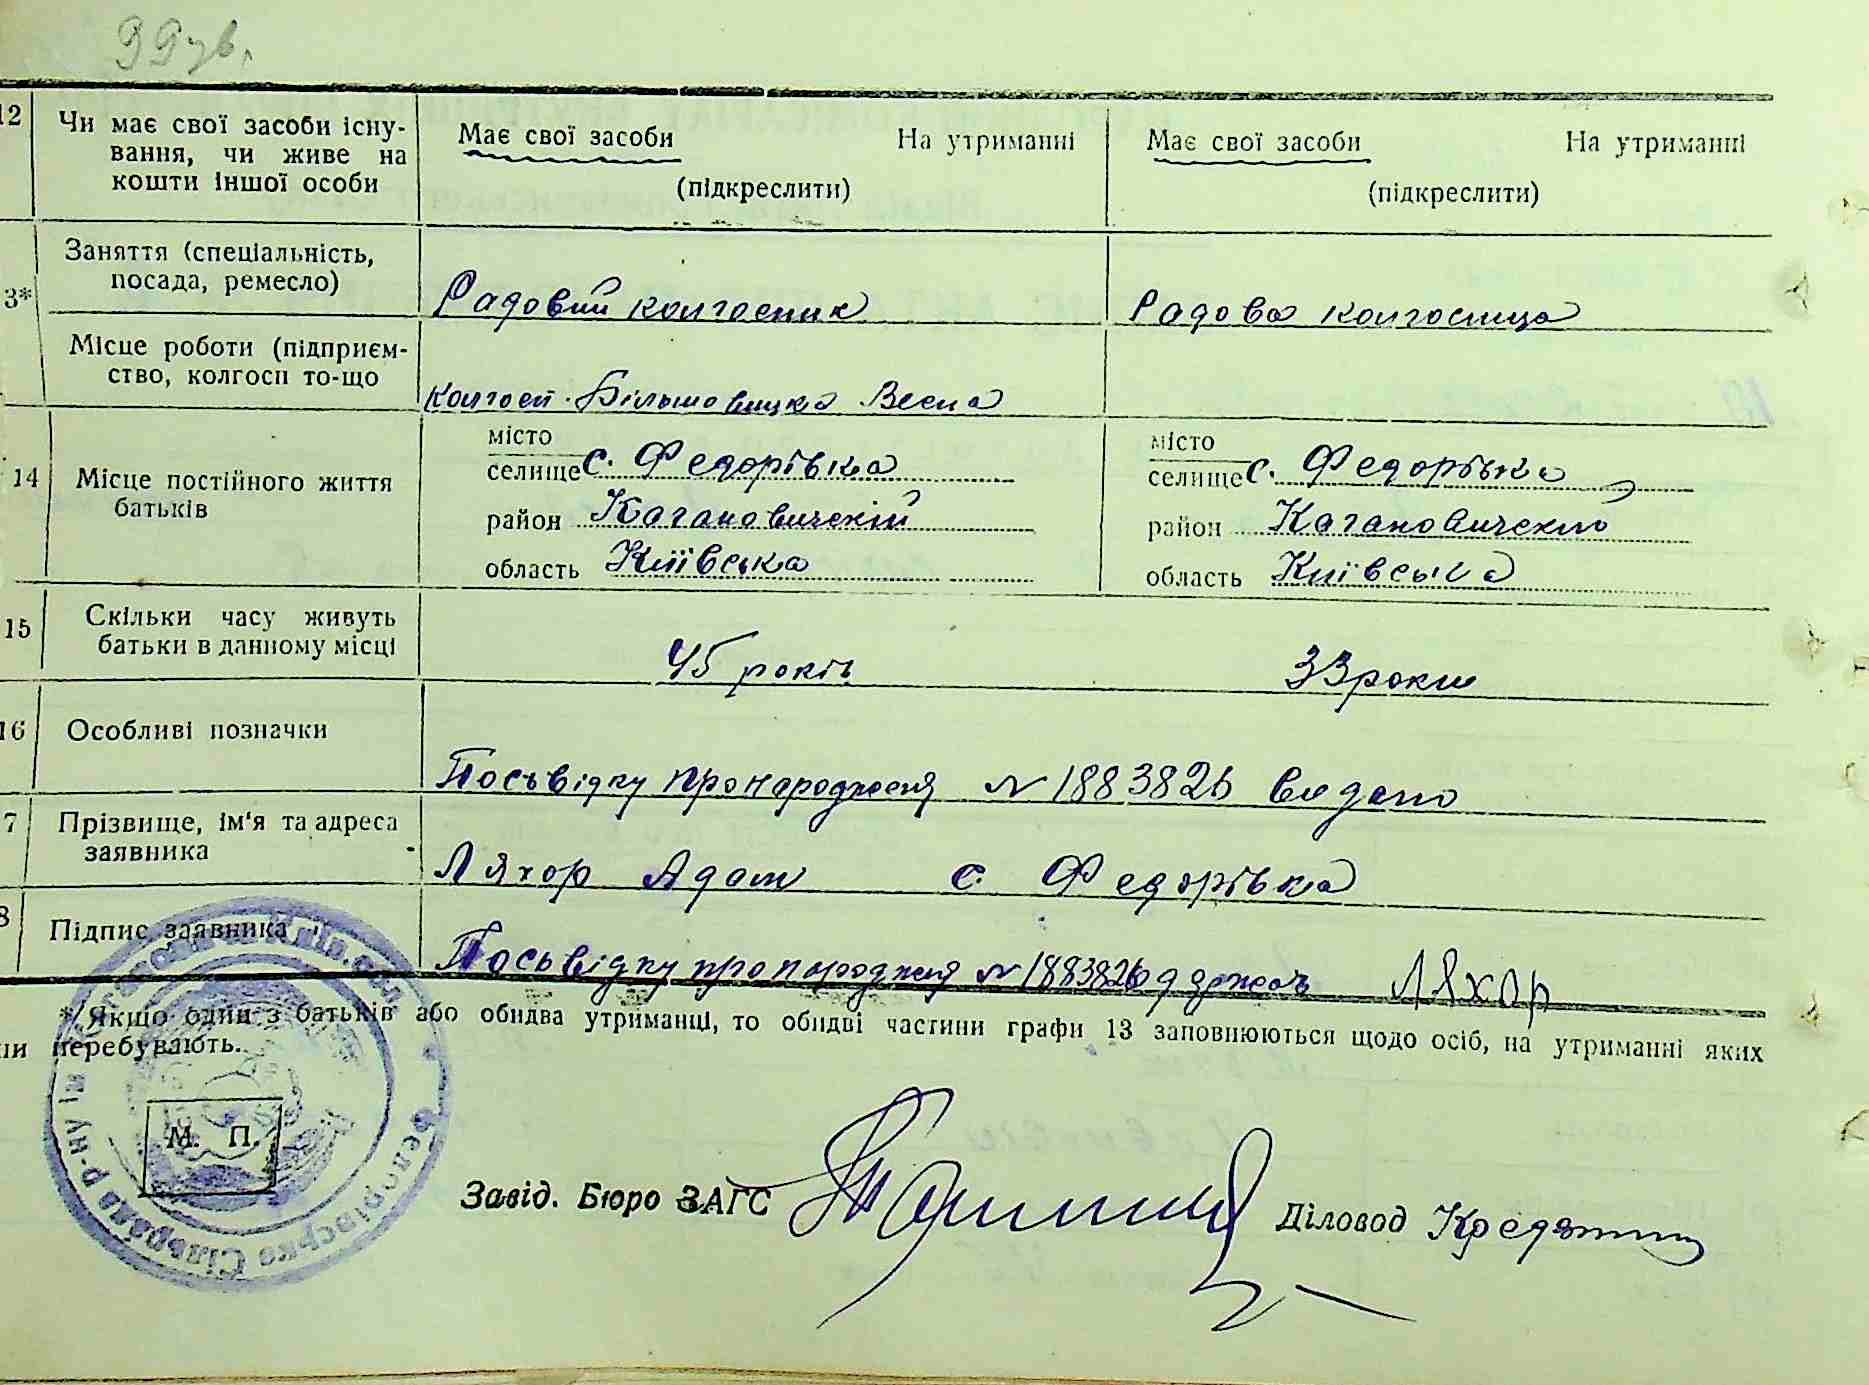 99 зв.
12 Чи має свої засоби існу- Має свої засоби На утриманні Має свої засоби На утриманні
вання, чи живе на
кошти іншої особи (підкреслити) (підкреслити)
Заняття (спеціальність,
посада, ремесло) Радовий колгосник Радова колгосниця
3*
Місце роботи (підприєм-
ство, колгосп то-що колгосп Більшовицка Весна
14 Місце постійного життя
батьків
місто
селище с. Федорівка
район Кагановичекій
область Київська
місто
селище с. Федорівка
район Кагановичекій
область Київська
15 Скільки часу живуть
батьки в данному місці 45 років 33 роки
16 Особливі позначки
Посьвідку про народження № 1883826 видано
7 Прізвище, ім'я та адреса
заявника Ляхор Адам с. Федорівка
8 Підпис заявника
Посьвідку про народженя № 1883826 одержав Ляхор
* Якщо один з батьків або обидва утриманці, то обидві частини графи 13 заповнюються щодо осіб, на утриманні яких
ни перебувають.
М. П.
Федорівська Сільрада р-ну ім
Завід. Бюро ЗАГС Діловод